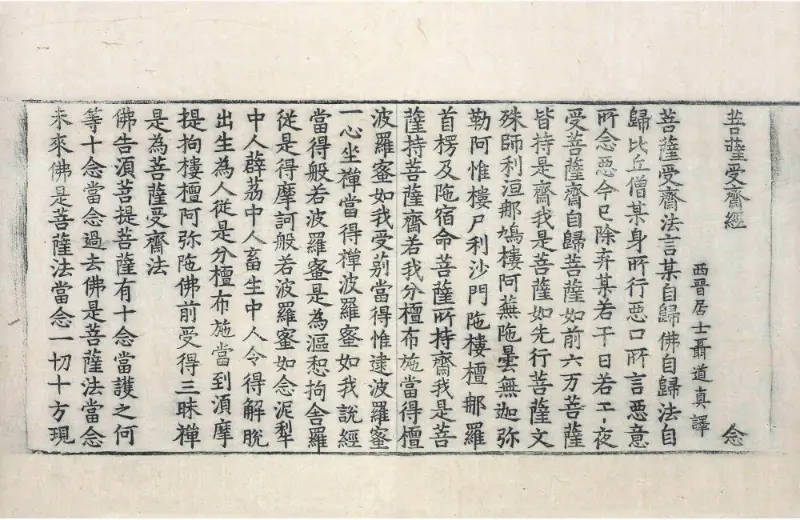 菩薩受齋經　念
西晉居士聶道真譯
菩薩受齋法言某自歸佛自歸法自
歸比丘僧某身所行惡口所言惡意
所念惡今已除弃某若干日若夜
受菩薩齋自歸菩薩如前六万菩薩
皆持是齋我是菩薩如先行菩薩文
殊師利洹那鳩樓阿蕪陁曇無迦弥
勒阿惟樓尸利沙門陁樓檀那羅
首楞及陁宿命菩薩所持齋我是菩
薩持菩薩齋若我分檀布施當得檀
波羅蜜如我受莂當得惟逮波羅蜜
一心坐禅當得禅波羅蜜如我說經
當得般若波羅蜜是為漚惒拘舍羅
從是得摩訶般若波羅蜜如念泥犁
中人薜荔中人畜生中人令得解脫
出生為人從是分檀布施當到湏摩
提拘樓檀阿弥陁佛前受得三昧禅
是為菩薩受齋法
佛告湏菩提菩薩有十念當護之何
等十念當念過去佛是菩薩法當念
未來佛是菩薩法當念一切十方現